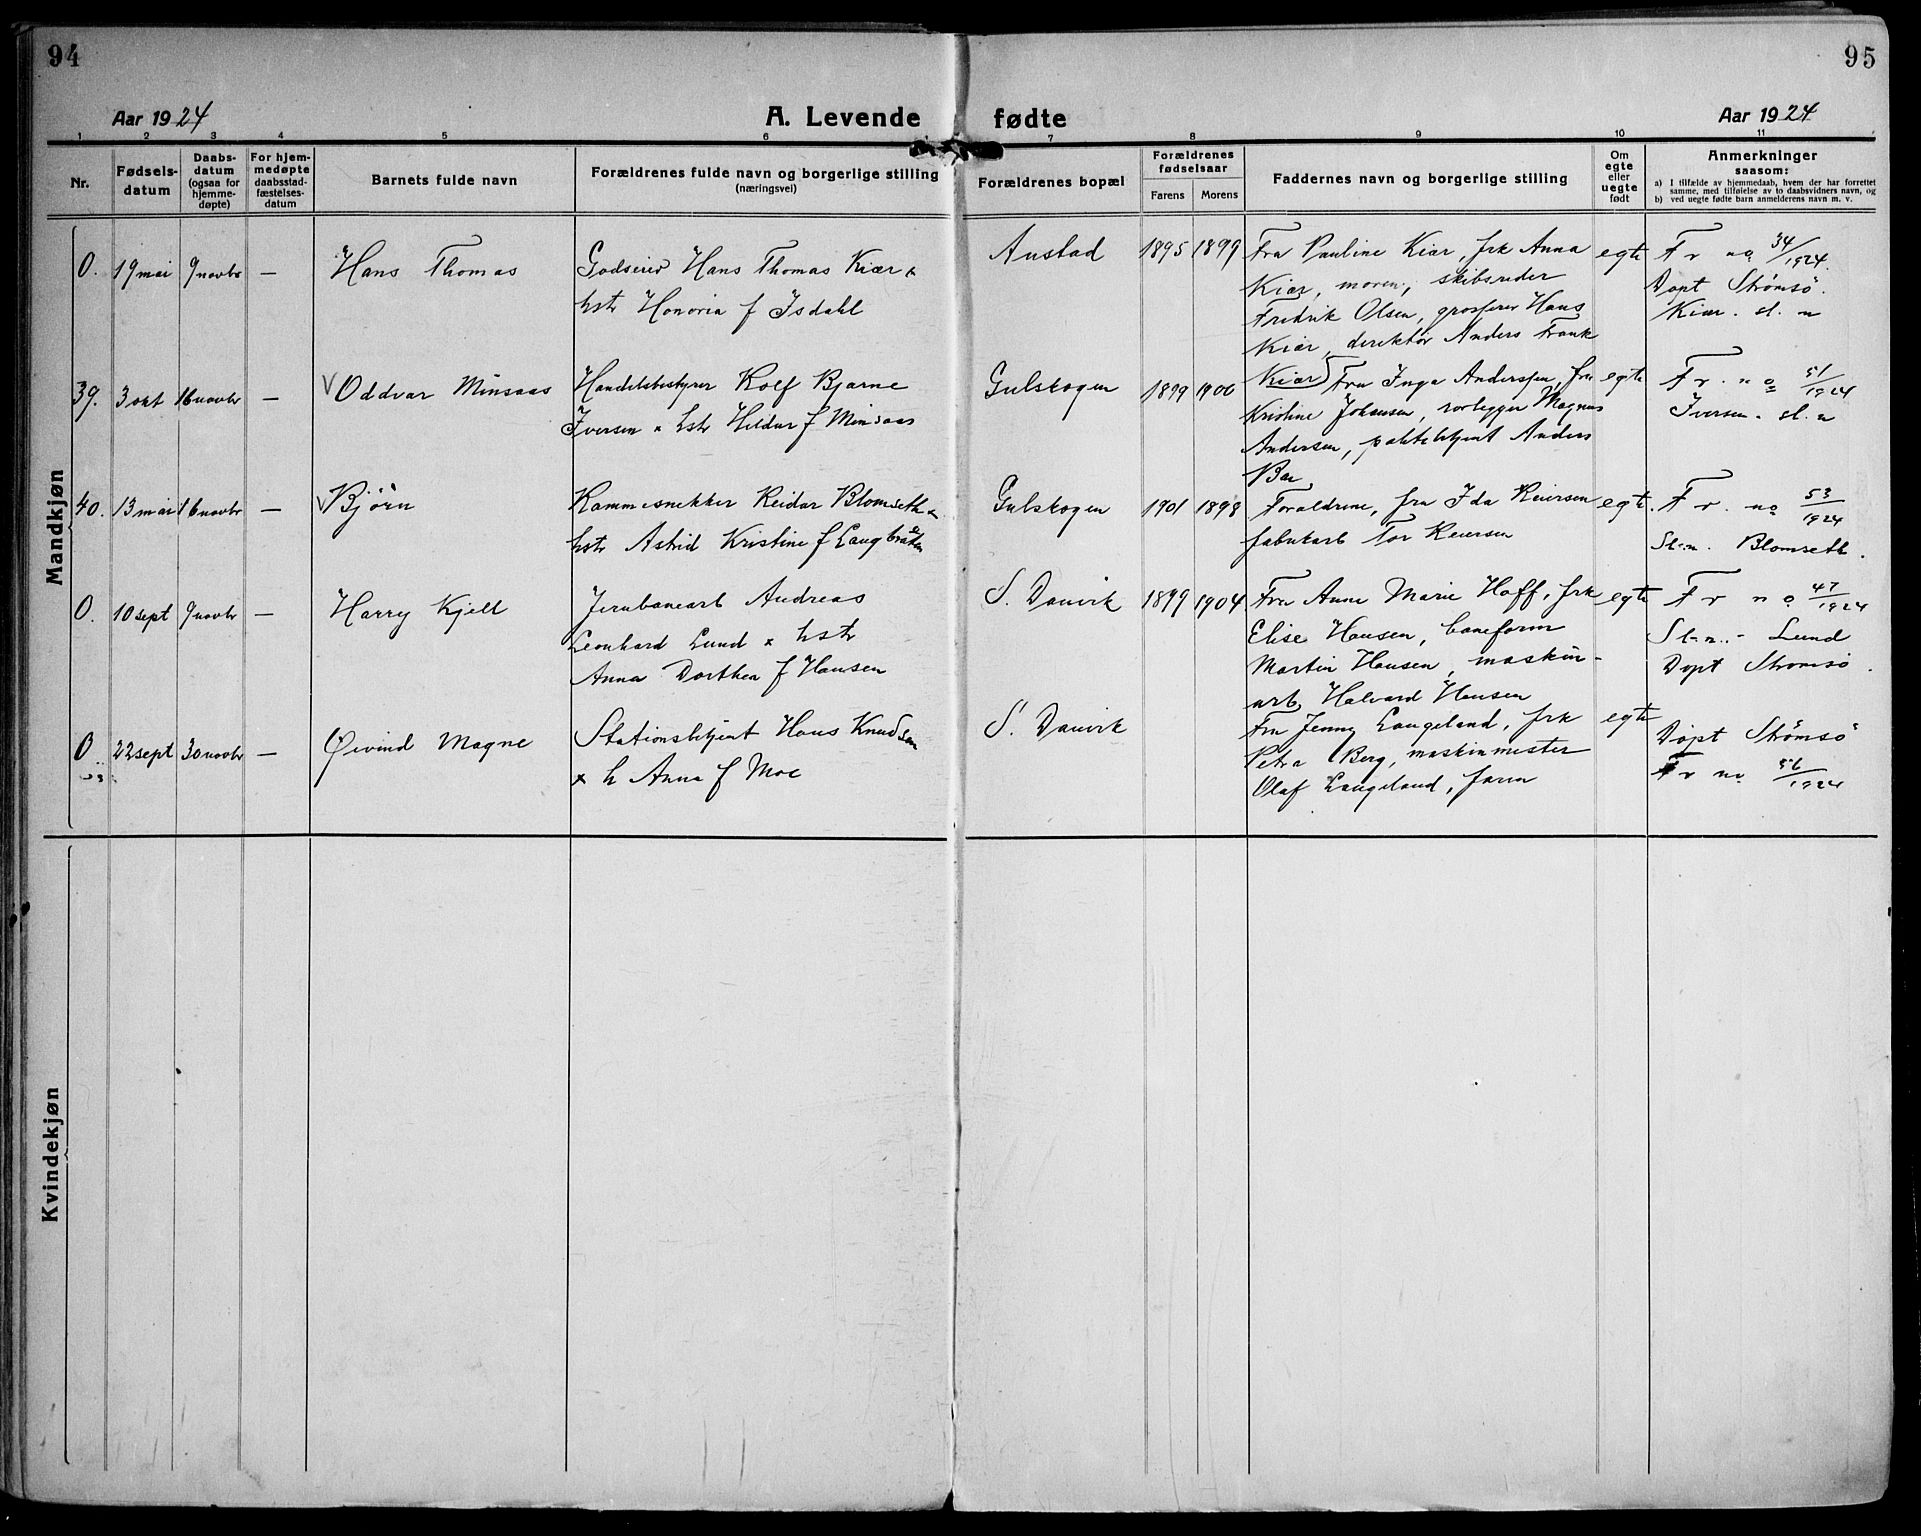 94
95
Aar 1924
A. Levende fødte
Aar 1924
1 2 3 4 5 6 7 8 9 10 11
Nr.
Fødsels-
datum
Daabs-
datum
(ogsaa for
hjemme-
døpte)
For hjem-
medøpte
daabsstad-
fæstelses-
datum
Barnets fulde navn
Forældrenes fulde navn og borgerlige stilling
(næringsvei)
Forældrenes bopæl
Forældrenes
fødselsaar
Farens Morens
Faddernes navn og borgerlige stilling
Om
egte
eller
uegte
født
Anmerkninger
saasom:
a) I tilfælde av hjemmedaab, hvem der har forrettet
samme, med tilføielse av to daabsvidners navn, og
b) ved uegte fødte barn anmelderens navn m. v.
Mandkjøn
0. 19 mai 9 novbr — Hans Thomas
Godseier Hans Thomas Kiær
hstr Honoria f Isdahl
Austad 1895 1899
Fru Pauline Kiær, frk Anna
Kiær, moren, skibsreder
Fredrik Olsen, grosserer Hans
Kiær, direktør Anders Frank
Kiær
egte
F r no 34/1924.
Døpt Strømsø.
Kiær. sl. n
39. 3 okt 16 novbr — V Oddvar Minsaas
Handelsbestyrer Rolf Bjarne
Iversen x hstr Hildur f Minsaas
Gulskogen 1899 1900
Fru Inga Anderssen, fru
Kristine Johansen, rørlegger Magnus
Andersen, pakkbetjent Anders
Bae
egte
F r. no 51/1924
Iversen. sl. n
40. 13 mai 16 novbr — V Bjørn
Rammesnekker Reidar Blomseth
hstr Astrid Kristine f Laugbråten
Gulskogen 1901 1898
Forældrene, fru Ida Reiersen
fabrikarb Tor Reiersen
egte.
F r. no 53/1924
Sl.n. Blomseth.
0. 10 sept 9 novbr — Harry Kjell
Jernbanearb Andreas
Leonhard Lund x hstr
Anna Dorthea f Hansen
S. Danvik 1899 1904
Fru Anne Marie Hoff, frk
Elise Hansen, baneform
Martin Hansen, maskin-
arb, Halvard Hansen
egte
F r no 47/1924
Sl.n.. - Lund
Døpt Strømsø.
0 22 sept 30 novbr — Øivind Magne
Stationsbetjent Hans Knudsen
x h Anna f Moe
S. Danvik
Fru Jenny Laugeland, frk
Petra Berg, maskinmester
Olaf Laugeland, faren
egte
Døpt Strømsø
F r no 56/1924
Kvindekjøn